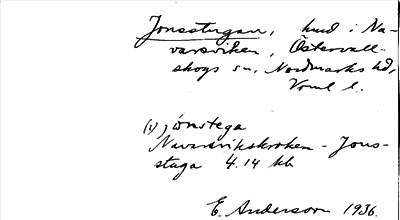 Jonsstugan, hmd i Na-
varsviken, Östervall-
skogs sn, Nordmarks hd,
Vrml l.
(i) jònstega
Navarsvikskroken - Jons-
stuga 4.14 kb
E. Anderson 1936.